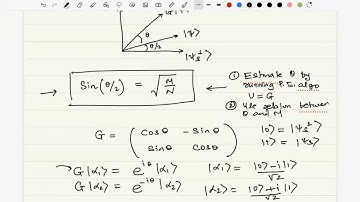 G|ψ⟩
θ
|ψ⟩
θ/2
|ψ_s^⊥⟩
→ Sin(θ/2) = √(M/N)
① Estimate θ by
running P.E. algo
U = G
② Use relation between
θ and M
G = ( Cosθ −Sinθ
sinθ Cosθ )
|0⟩ = |ψ_s^⊥⟩
|1⟩ = |ψ_s⟩
G|α₁⟩ = e^{iθ} |α₁⟩ |α₁⟩ = |0⟩−i|1⟩/√2
G|α₂⟩ = e^{−iθ} |α₂⟩ |α₂⟩ = |0⟩+i|1⟩/√2